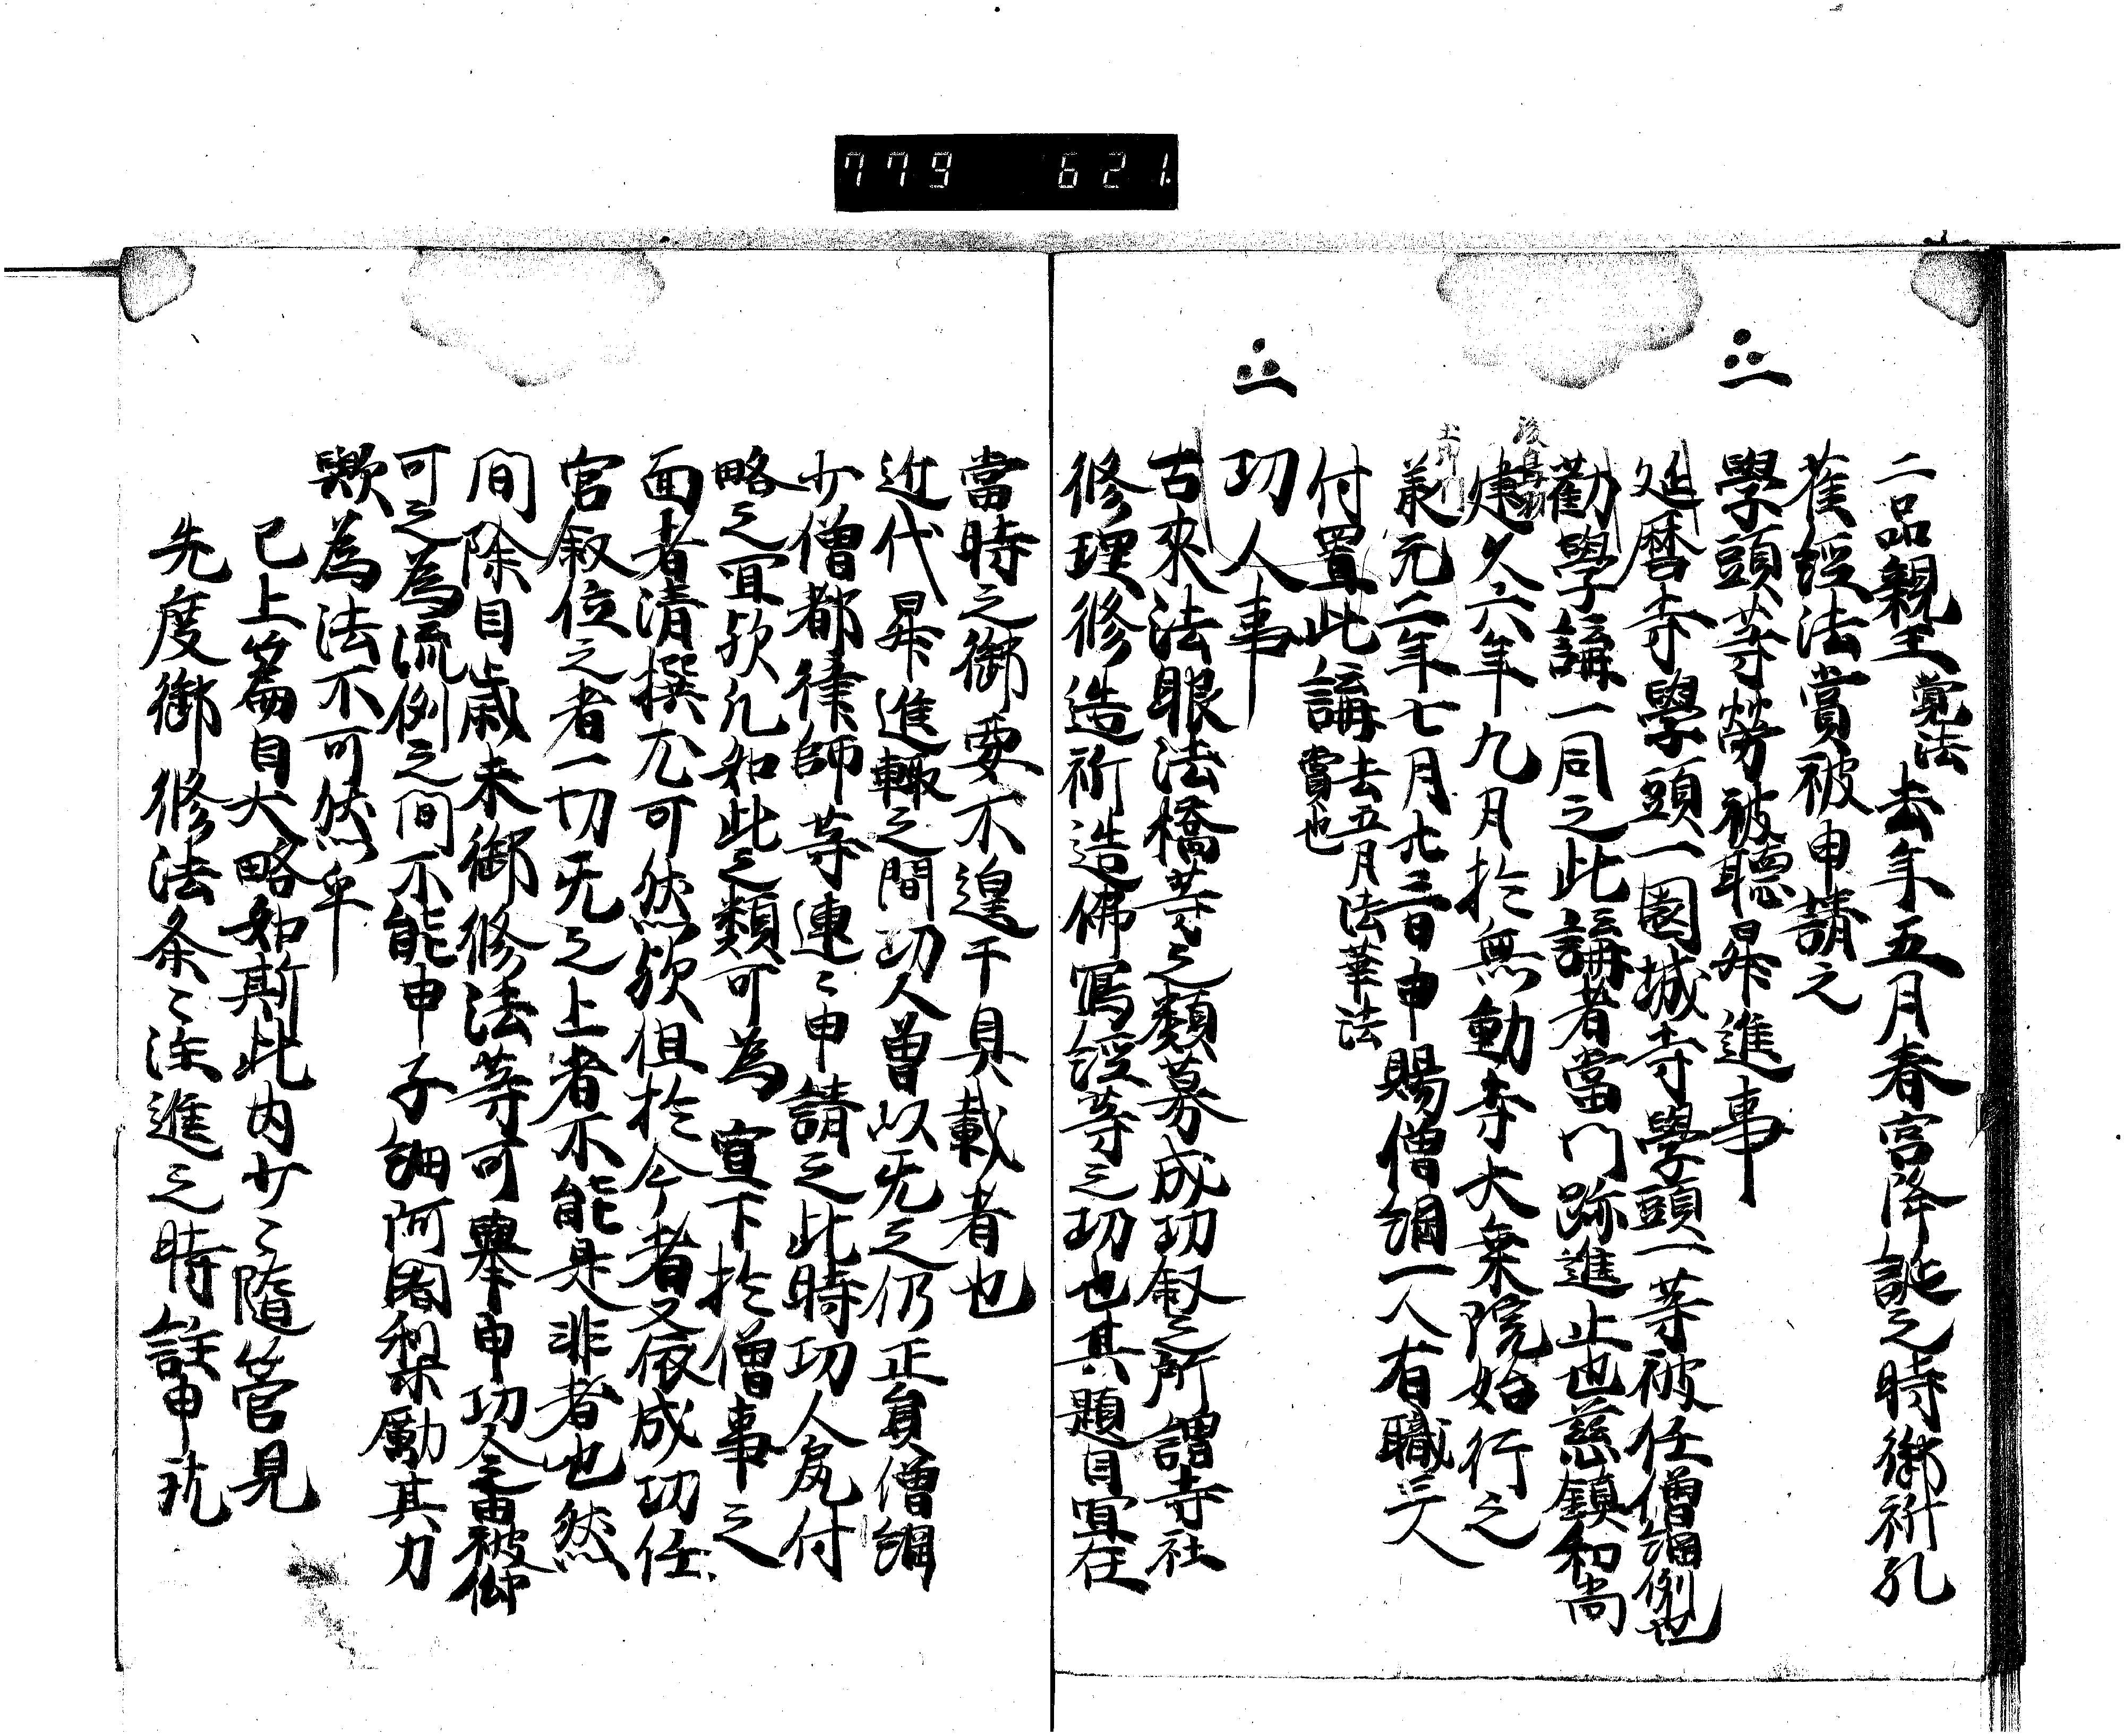 779 621
二品親王覺法去年五月春宮降誕之時御祈孔
雀經法賞被申請之
一學頭等勞被聽昇進事
延曆寺學頭一園城寺學頭一等被任僧綱例也
勸學講一同之此講者當門跡進止也慈鎮和尚
建久六年九月於無動寺大乘院始行之
承元二年七月廿三日申賜僧綱一人有職三人
付置此講去五月法華法
賞也
一功人事
古來法眼法橋等之類募成功叙之所謂寺社
修理修造祈造佛寫經等之功也其題目冝在
當時之御要不遑于具載者也
近代昇進輙之間功人曾以旡之仍正員僧綱
少僧都律師等連〻申請之此時功人処付
略之冝歟凡如此之類可為宣下於僧事之
面者清撰尤可然歟但於今者又依成功任
官叙位之者一切旡之上者不能是非者也然
間除目歲末御修法等可舉申功人之由被仰
可之為流例之間不能申子細阿闍梨勵其力
歟為法不可然乎
已上篇目大略如斯此内少〻隨管見
先度御修法条〻注進之時註申訖